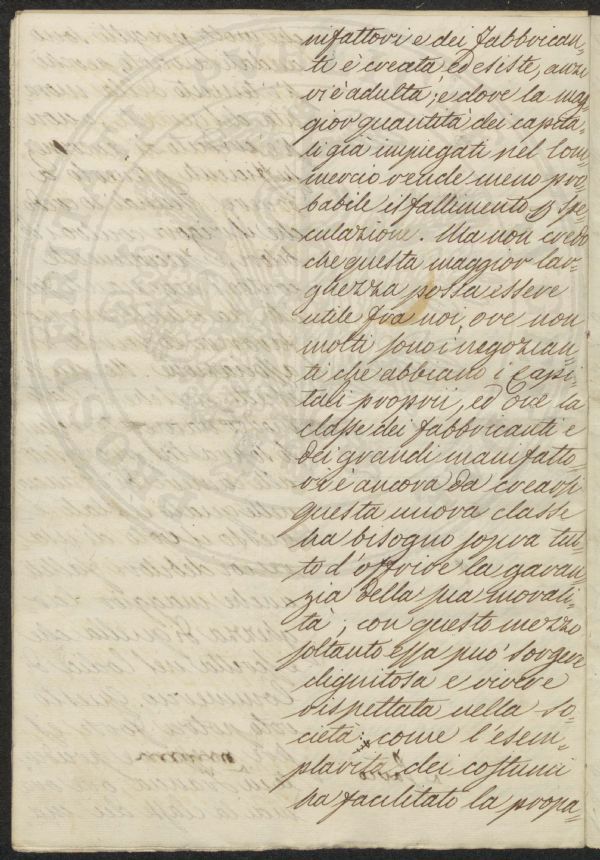 nifattori e dei fabbrican-
ti è creata ed esiste, anzi
vi è adulta; e dove la mag-
gior quantità dei capita-
li già impiegati nel Com-
mercio rende meno pro-
babile il fallimento p spe-
culazione. Ma non credo
che questa maggior lar-
ghezza possa essere
utile fra noi, ove non
molti sono i negozian-
ti che abbiano i Capi-
tali proprii, ed ove la
classe dei fabbricanti e
dei grandi manifatto-
ri è ancora da crearsi
questa nuova classe
ha bisogno sopra tut-
to d'offrire la garan-
zia della sua morali-
tà; con questo mezzo
soltanto essa può sorgere
dignitosa e vivere
rispettata nella so-
cietà: come l'esem-
plarità dei costumi
ha facilitato la propa-